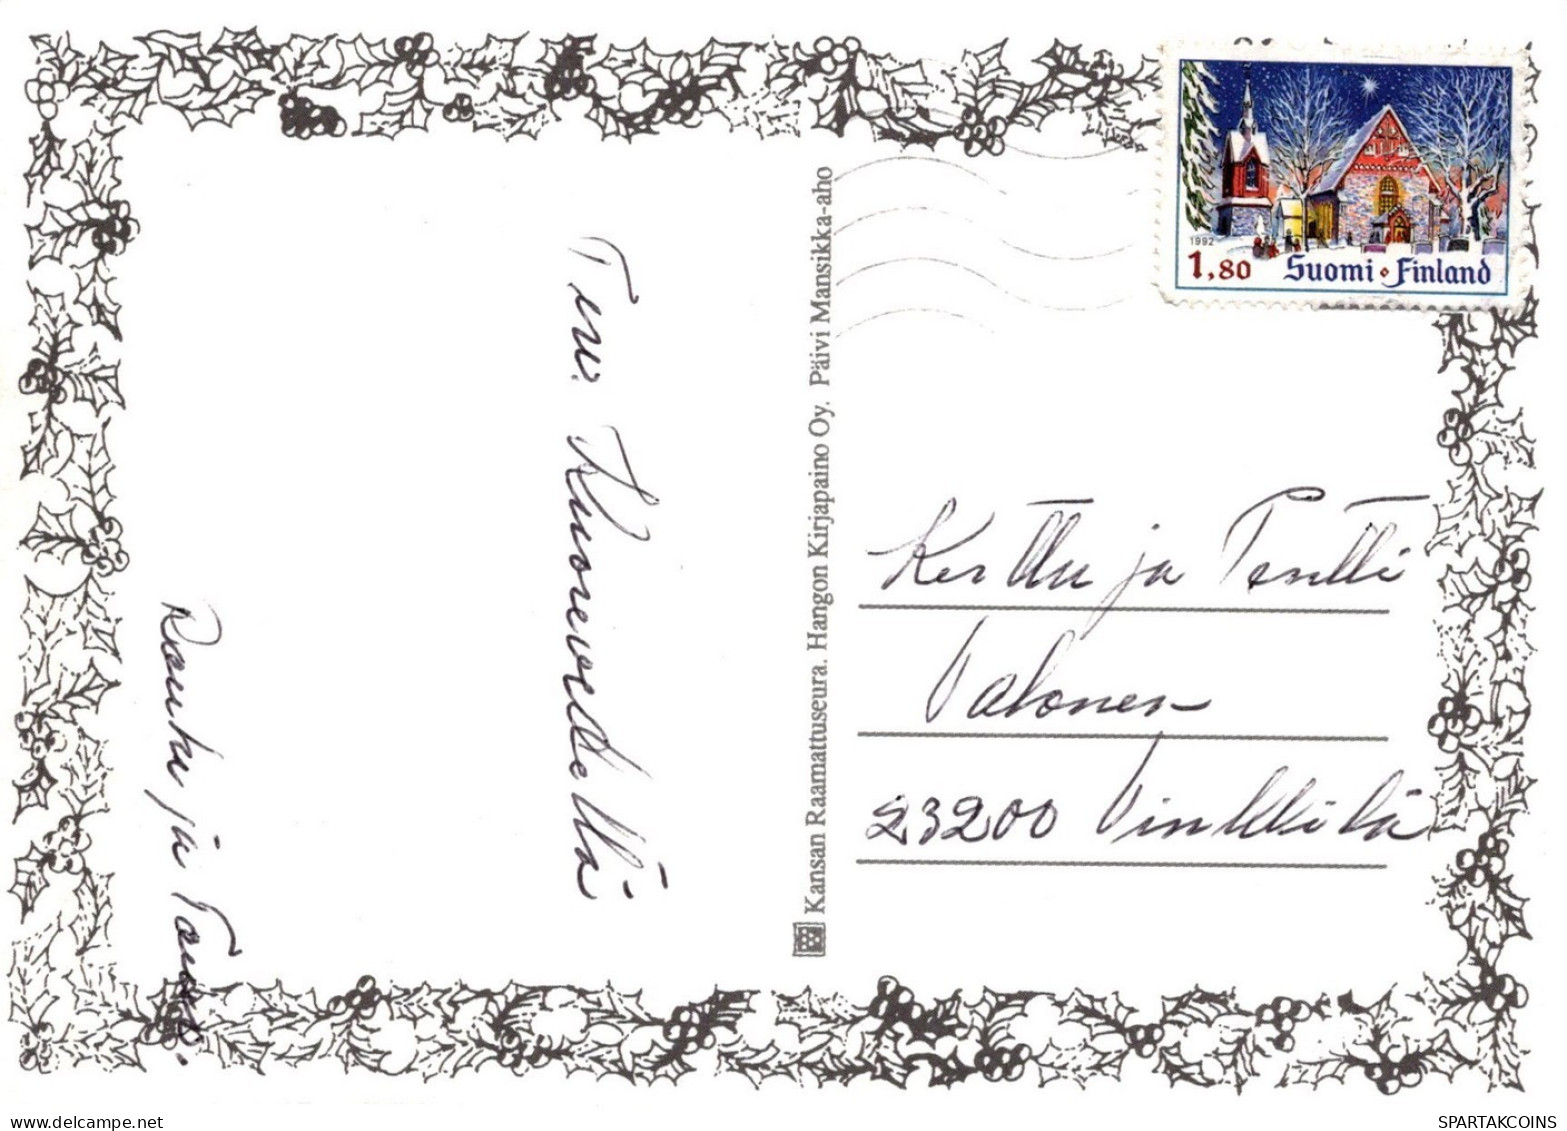 Terv. Kuorevedeltä
Rauha ja Tauno.
Kansan Raamattuseura. Hangon Kirjapaino Oy. Päivi Mansikka-aho
1992
1,80 Suomi • Finland
Kerttu ja Pentti
Valonen
23200 Vinkkilä
www.delcampe.net
SPARTAKCOINS